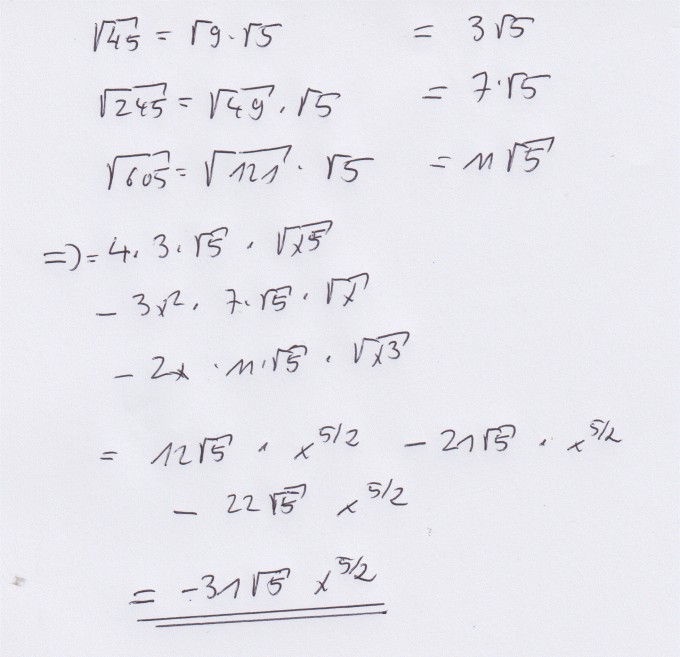 √45 = √9 · √5 = 3√5
√245 = √49 · √5 = 7·√5
√605 = √121 · √5 = 11√5
=> = 4 · 3 · √5 · √x5
- 3x² · 7·√5 · √x
- 2x · 11·√5 · √x3
= 12√5 · x^5/2 - 21√5 · x^5/2
- 22√5 x^5/2
= -31√5 x^5/2